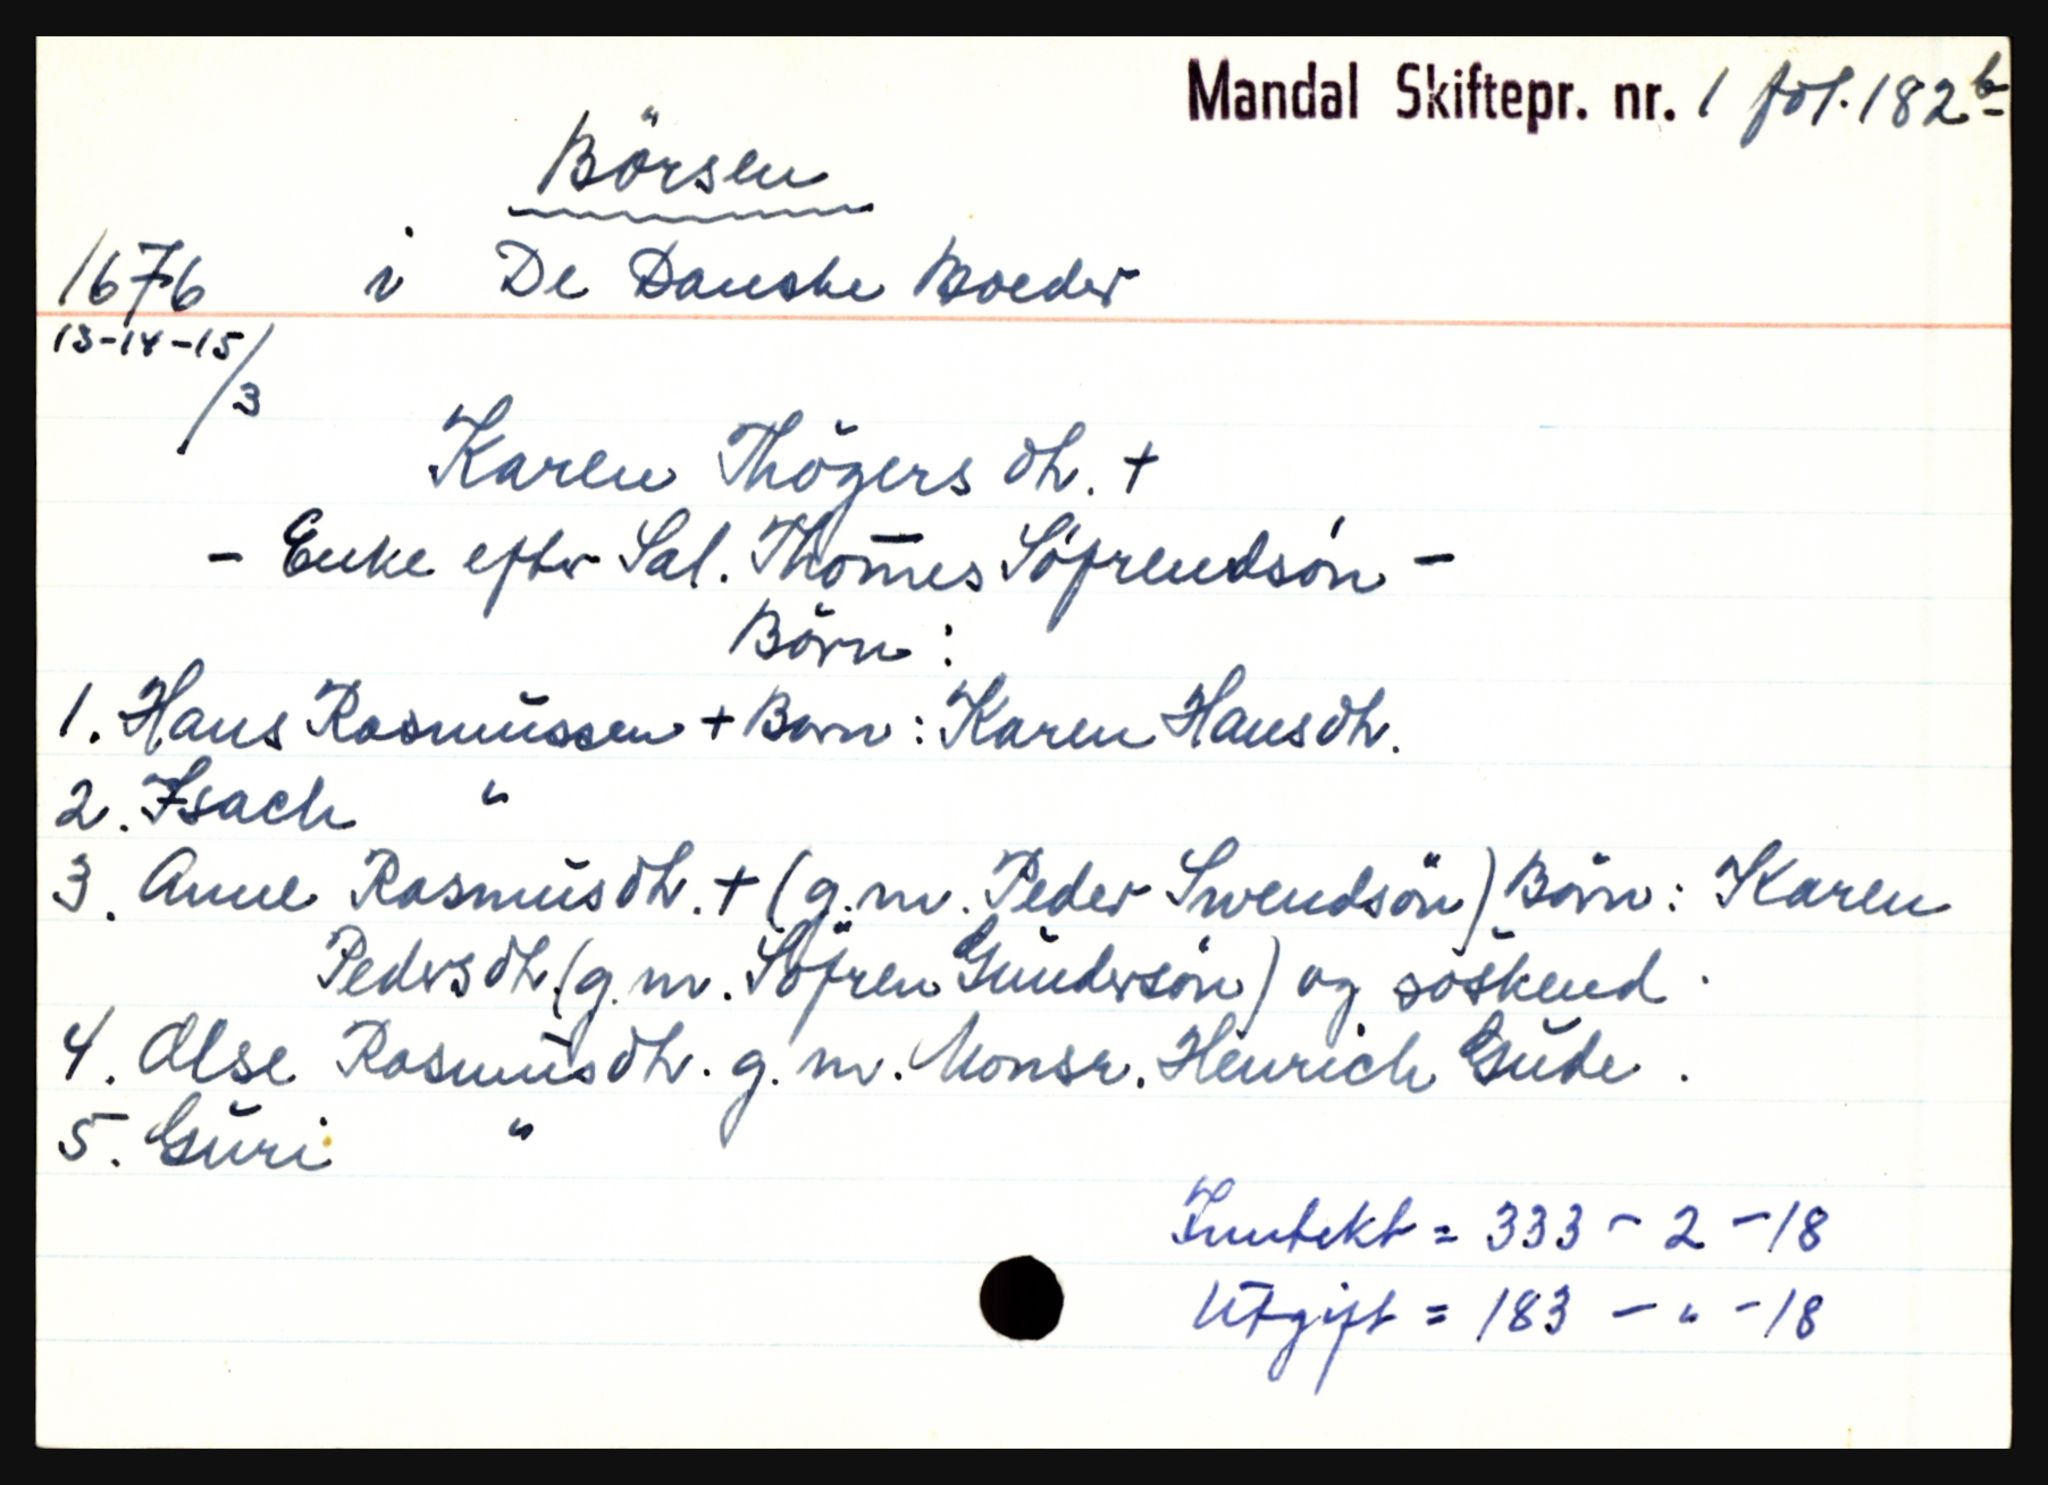 Mandal Skiftepr. nr. 1 fol. 182b
Börsen
1676 i De Danske Boeder
13-14-15/3
Karen Thögers dh. +
- Enke efter Sal. Thom̄es Söfrendsön -
Börn:
1. Hans Rasmŭssen + Barn: Karen Hansdh.
2. Isach "
3. Anne Rasmŭsdh. + (g.m. Peder Swendsön) Börn: Karen
Pedersdh. (g.m. Söfren Gŭndersön) og söskend.
4. Alse Rasmŭsdh. g.m. Monsr. Henrich Gŭde.
5. Gŭri "
Inntekt = 333 - 2 - 18
Utgift = 183 - " - 18